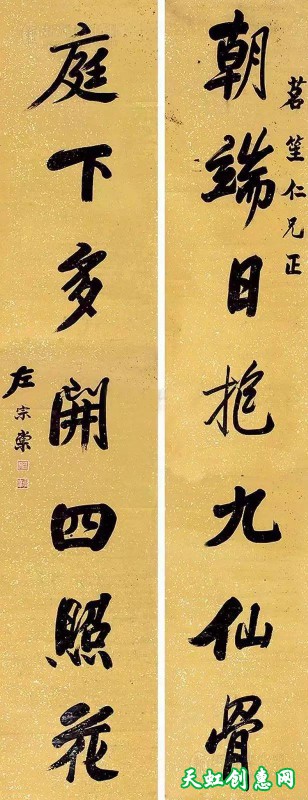 茗笙仁兄正
朝端日抱九仙骨
庭下多開四照花
左宗棠
天虹创惠网